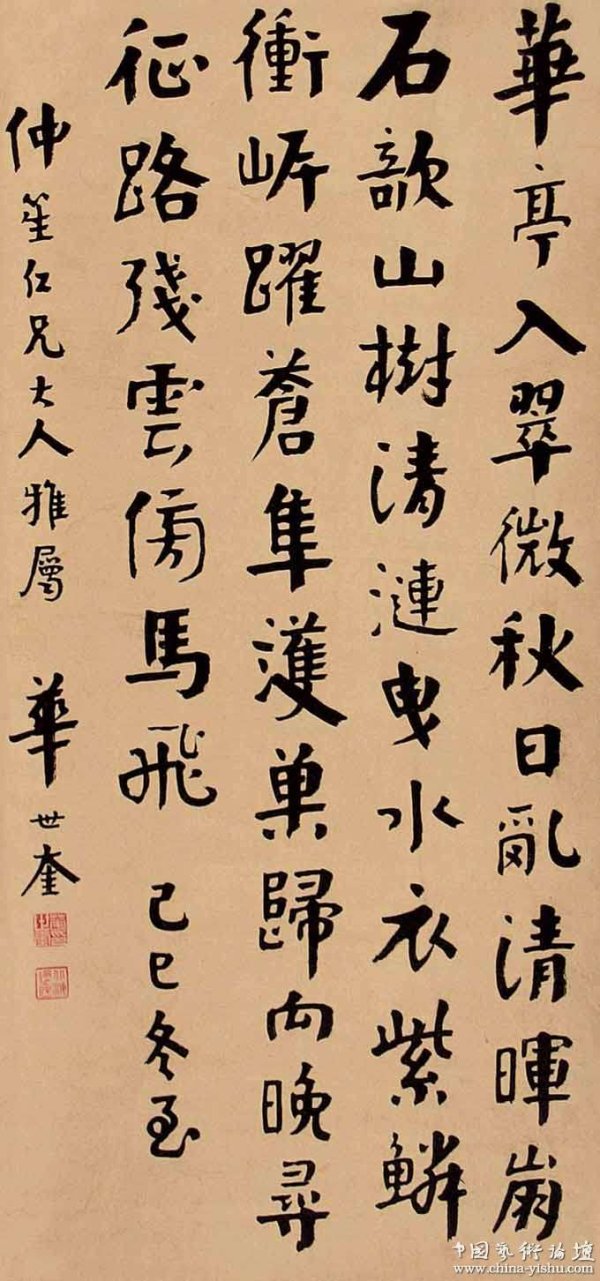 華亭入翠微秋日亂清暉崩
石欹山樹清漣曳水衣紫鱗
衝岸躍蒼隼護巢歸向晚尋
征路殘雲傍馬飛 己巳冬至
仲笙仁兄大人雅屬 華世奎
中國藝術論壇
www.china-yishu.com